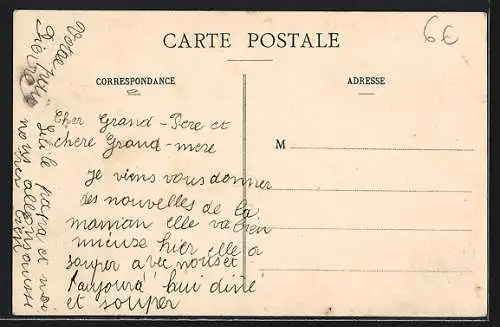 CARTE POSTALE
6€
CORRESPONDANCE
ADRESSE
M
Cher Grand-Pere et
chere Grand-mere
Je viens vous donner
des nouvelles de la
maman elle va bien
mieuxe hier elle a
souper avec nous et
aujourd'hui diné
et souper
Lili le papa et moi
nous allons aussi
bien
Votre
Pierre